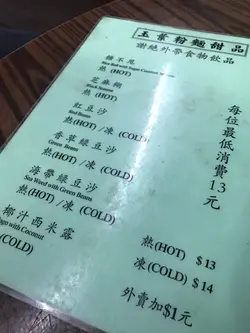 玉葉粉麵甜品
謝絕外帶食物飲品
糖不甩
熱 (HOT)
芝麻糊
Black Sesame
熱 (HOT)
紅豆沙
Red Beans
熱(HOT) /凍 (COLD)
香草綠豆沙
Green Beans
熱(HOT) /凍 (COLD)
海帶綠豆沙
Sea Weed with Green Beans
熱(HOT) /凍 (COLD)
椰汁西米露
Sago with Coconut
(COLD)
每位最低消費13元
熱(HOT) $13
凍(COLD) $14
外賣加$1元